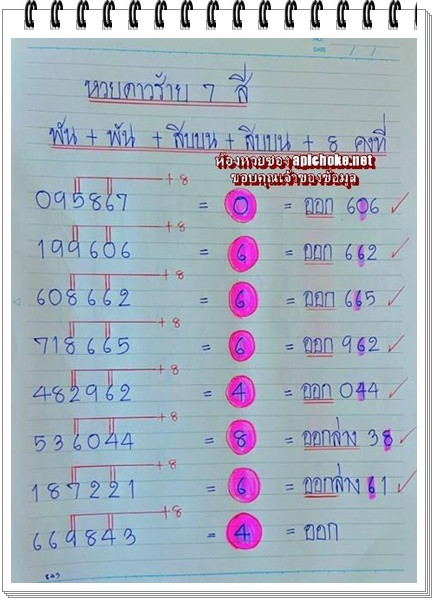 หวยดาวร้าย 7 สี
พัน + พัน + สิบบน + สิบบน + 8 คงที่
ห้องหวยของ apichoke.net
ขอบคุณเจ้าของข้อมูล
+8
095867 = 0 = ออก 606 ✓
+8
199606 = 6 = ออก 662 ✓
+8
608662 = 6 = ออก 665 ✓
+8
718665 = 6 = ออก 962 ✓
+8
482962 = 4 = ออก 044 ✓
+8
536044 = 8 = ออกล่าง 38 ✓
+8
187221 = 6 = ออกล่าง 61 ✓
+8
669843 = 4 = ออก